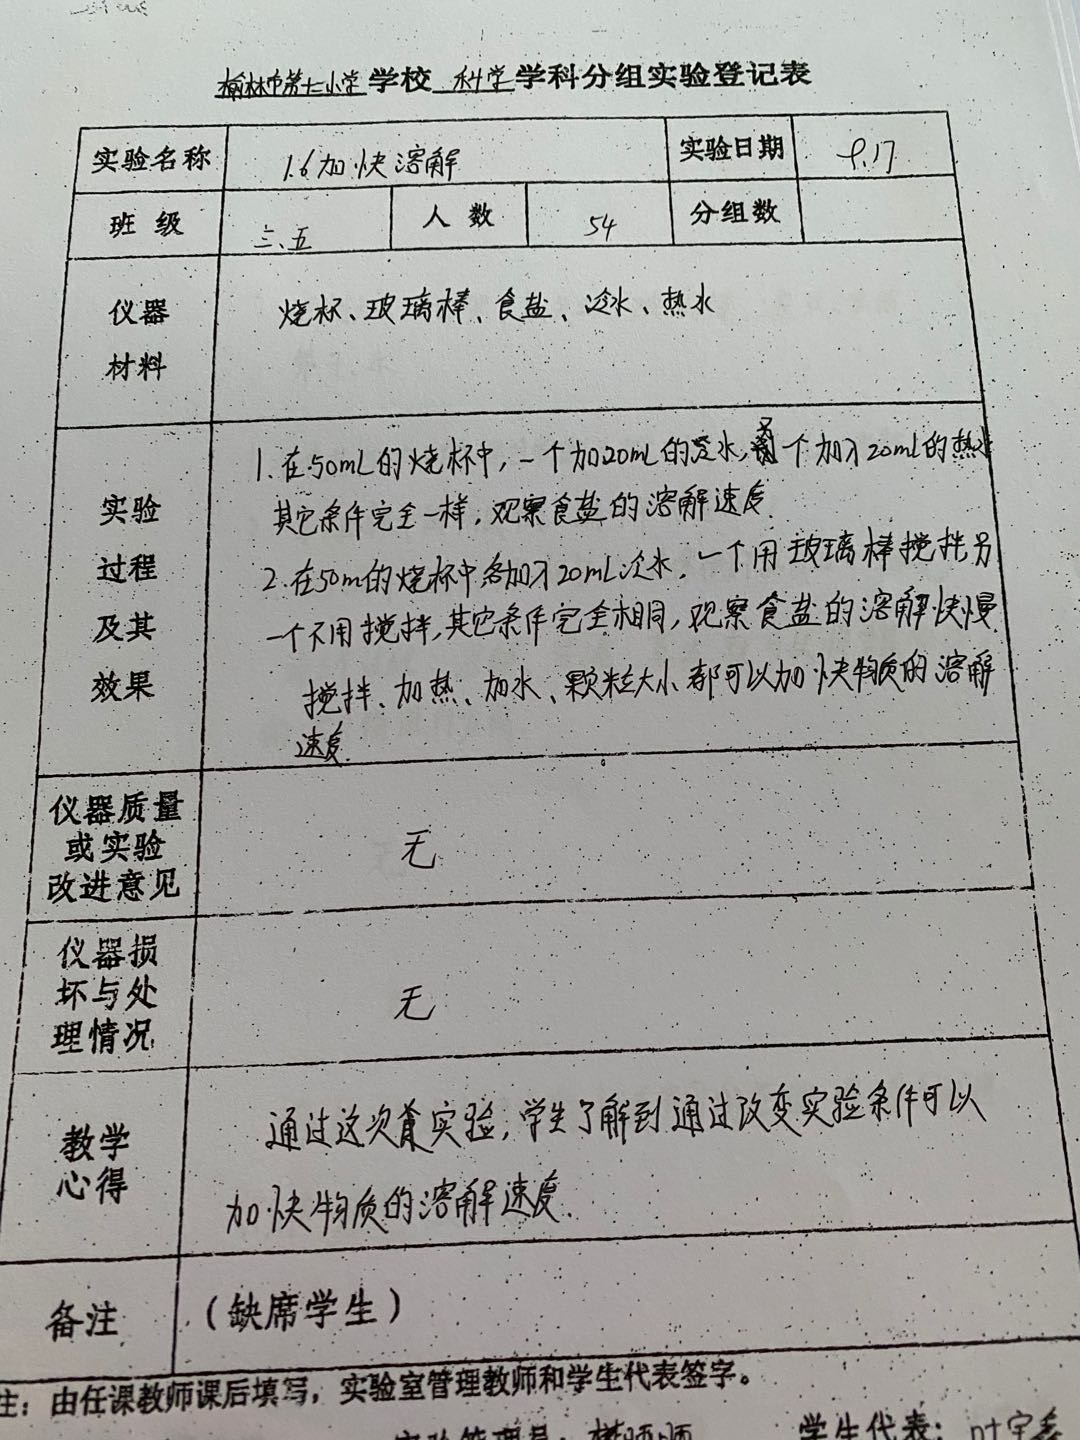 榆林市第十二小学学校 科学 学科分组实验登记表
实验名称 1.6加快溶解 实验日期 9.17
班级 三.五 人数 54 分组数
仪器材料 烧杯、玻璃棒、食盐、冷水、热水
实验过程及其效果
1.在50mL的烧杯中,一个加20mL的冷水,另一个加入20mL的热水
其它条件完全一样,观察食盐的溶解速度.
2.在50m的烧杯中各加入20mL冷水,一个用玻璃棒搅拌另
一个不用搅拌,其它条件完全相同,观察食盐的溶解快慢
搅拌、加热、加水、颗粒大小都可以加快物质的溶解
速度.
仪器质量或实验改进意见 无
仪器损坏与处理情况 无
教学心得
通过这次实验,学生了解到通过改变实验条件可以
加快物质的溶解速度.
备注 (缺席学生)
注:由任课教师课后填写,实验室管理教师和学生代表签字。
实验管理员: 学生代表:叶宇